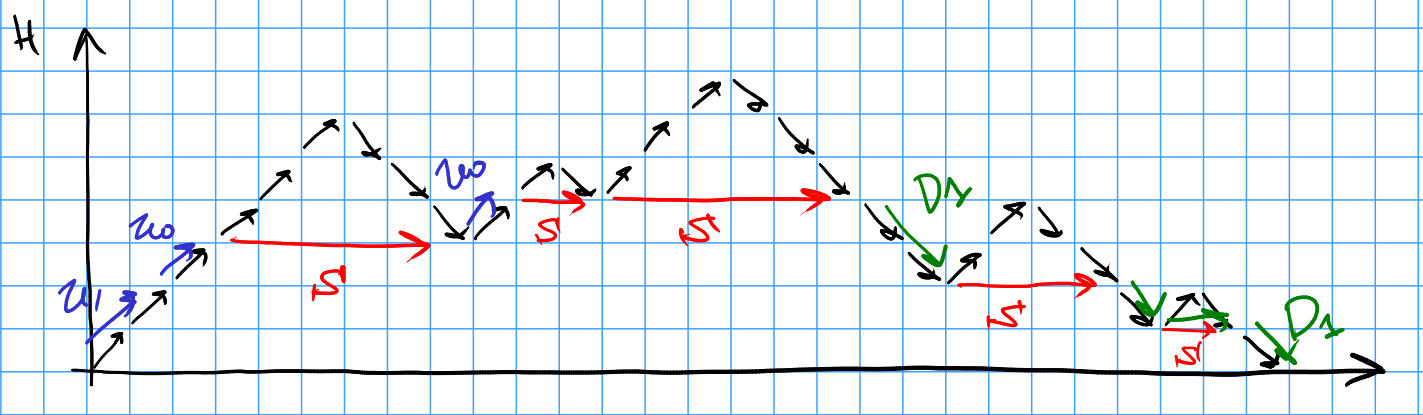 H
U1
U0
S
U0
S
S
D1
S
S
D1